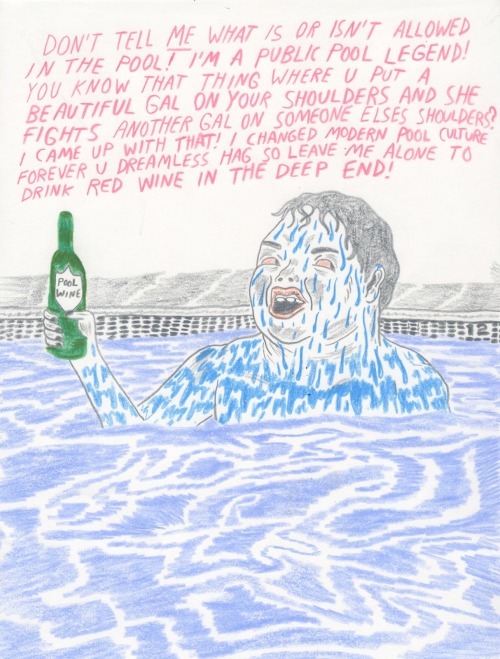 DON'T TELL ME WHAT IS OR ISN'T ALLOWED
IN THE POOL! I'M A PUBLIC POOL LEGEND!
YOU KNOW THAT THING WHERE U PUT A
BEAUTIFUL GAL ON YOUR SHOULDERS AND SHE
FIGHTS ANOTHER GAL ON SOMEONE ELSES SHOULDERS?
I CAME UP WITH THAT! I CHANGED MODERN POOL CULTURE
FOREVER U DREAMLESS HAG SO LEAVE ME ALONE TO
DRINK RED WINE IN THE DEEP END!
POOL
WINE